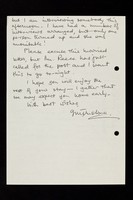 but I am interviewing somebody, this
afternoon. I have had a number of
interviews arranged, but only one
person turned up and she was
unsuitable!
Please excuse this hurried
note, but Mr Reese has just
called for the post and I want
this to go to-night.
I hope you will enjoy the
rest of your stay — I gather that
we may expect you home early.
With best wishes